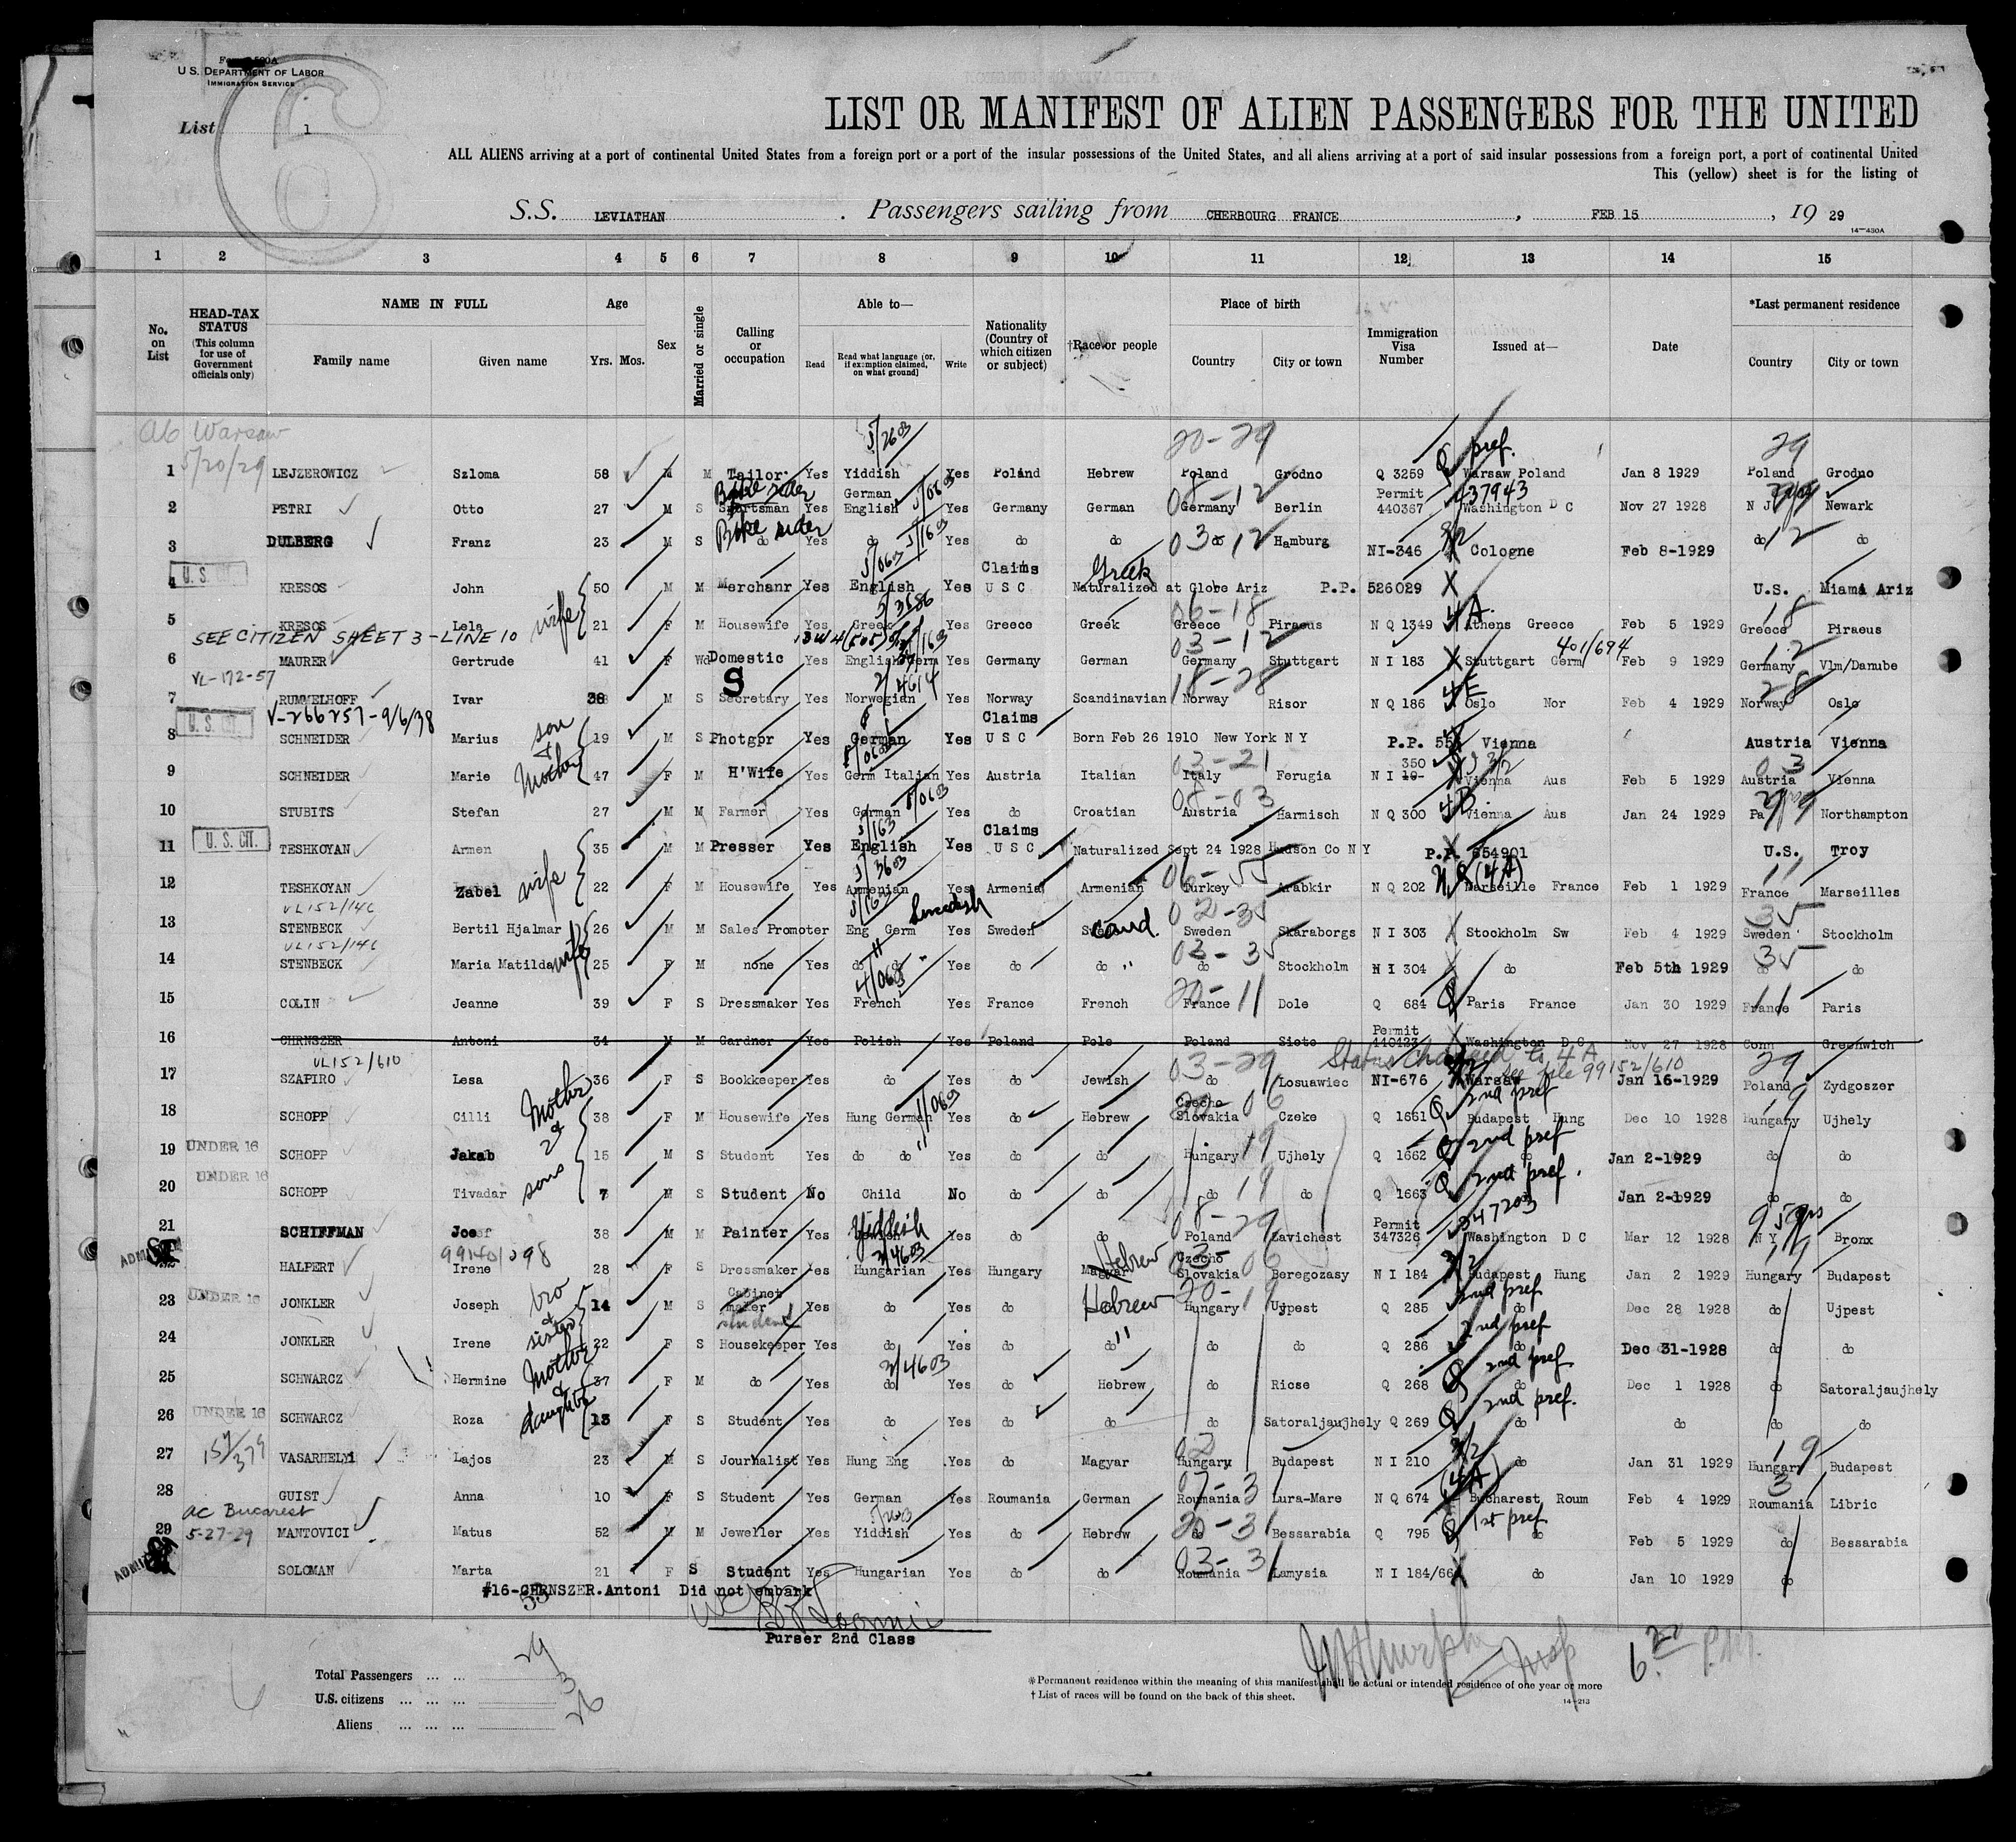 Form 500A
U. S. DEPARTMENT OF LABOR
IMMIGRATION SERVICE
6
List 1
LIST OR MANIFEST OF ALIEN PASSENGERS FOR THE UNITED
ALL ALIENS arriving at a port of continental United States from a foreign port or a port of the insular possessions of the United States, and all aliens arriving at a port of said insular possessions from a foreign port, a port of continental United
This (yellow) sheet is for the listing of
S.S. LEVIATHAN . Passengers sailing from CHERBOURG FRANCE , FEB 15 , 19 29
14-430A
1 2 3 4 5 6 7 8 9 10 11 12 13 14 15
No. on List HEAD-TAX STATUS (This column for use of Government officials only) NAME IN FULL Family name Given name Age Yrs. Mos. Sex Married or single Calling or occupation Able to— Read Read what language (or, if exemption claimed, on what ground) Write Nationality (Country of which citizen or subject) †Race or people Place of birth Country City or town Immigration Visa Number Issued at— Date *Last permanent residence Country City or town
Warsaw 5/20/29 20-29 Q pref. 29
1 LEJZEROWICZ Szloma 58 M M Tailor Yes Yiddish Yes Poland Hebrew Poland Grodno Q 3259 Warsaw Poland Jan 8 1929 Poland Grodno
Bike rider 08-12 437943
2 PETRI Otto 27 M S Sportsman Yes German English Yes Germany German Germany Berlin Permit 440367 Washington D C Nov 27 1928 N J Newark
Bike rider 03-12 3/2 12
3 DULBERG Franz 23 M S do Yes do Yes do do do Hamburg NI-346 Cologne Feb 8-1929 do do
U. S. CIT. Greek
4 KRESOS John 50 M M Merchanr Yes English Yes Claims U S C Naturalized at Globe Ariz P.P. 526029 X U.S. Miami Ariz
wife 06-18 4A. 18
5 KRESOS Lela 21 F M Housewife Yes Greek Yes Greece Greek Greece Piraeus N Q 1349 Athens Greece Feb 5 1929 Greece Piraeus
SEE CITIZEN SHEET 3-LINE 10 03-12 401/694 12
6 MAURER Gertrude 41 F Wd Domestic Yes English Germ Yes Germany German Germany Stuttgart N I 183 Stuttgart Germ Feb 9 1929 Germany Vlm/Danube
VL-172-57 S 2/4614 18-28 4E 28
7 RUMMELHOFF Ivar 38 M S Secretary Yes Norwegian Yes Norway Scandinavian Norway Risor N Q 186 Oslo Nor Feb 4 1929 Norway Oslo
V-266257-9/6/38
U. S. CIT. son &
8 SCHNEIDER Marius 19 M S Photgpr Yes German Yes Claims U S C Born Feb 26 1910 New York N Y P.P. Vienna Austria Vienna
Mother 03-21 3/2 03
9 SCHNEIDER Marie 47 F M H'Wife Yes Germ Italian Yes Austria Italian Italy Ferugia N I 350 Vienna Aus Feb 5 1929 Austria Vienna
08-03 4D.
10 STUBITS Stefan 27 M M Farmer Yes German Yes do Croatian Austria Harmisch N Q 300 Vienna Aus Jan 24 1929 Pa Northampton
U. S. CIT.
11 TESHKOYAN Armen 35 M M Presser Yes English Yes Claims U S C Naturalized Sept 24 1928 Hudson Co N Y P.P. 654901 U.S. Troy
wife 5/3603 06-55 (4A) 11
12 TESHKOYAN Zabel 22 F M Housewife Yes Armenian Yes Armenia Armenian Turkey Arabkir N Q 202 Marseille France Feb 1 1929 France Marseilles
VL152/146 Swedish Scand. 02-35 35
13 STENBECK Bertil Hjalmar 26 M M Sales Promoter Eng Germ Yes Sweden Sweden Skaraborgs N I 303 Stockholm Sw Feb 4 1929 Sweden Stockholm
VL152/146 wife 03-35 35
14 STENBECK Maria Matilda 25 F M none Yes do do Yes do do do Stockholm N I 304 do Feb 5th 1929 do do
20-11 Q 11
15 COLIN Jeanne 39 F S Dressmaker Yes French Yes France French France Dole Q 684 Paris France Jan 30 1929 France Paris
16 CHRNSZER Antoni 34 M M Gardner Yes Polish Yes Poland Pole Poland Siote Permit 440423 Washington D C Nov 27 1928 Conn Greenwich
VL152/610 03-29 Status changed to 4 A see file 99152/610 29
17 SZAPIRO Lesa 36 F S Bookkeeper Yes do Yes do Jewish do Losuawiec NI-676 Warsaw Jan 16-1929 Poland Zydgoszer
Mother 20-06 Q 2nd pref 19
18 SCHOPP Cilli 38 F M Housewife Yes Hung German Yes do Hebrew Czecho Slovakia Czeke Q 1661 Budapest Hung Dec 10 1928 Hungary Ujhely
UNDER 16 2 19 Q 2nd pref
19 SCHOPP Jakab 15 M S Student Yes do do Yes do do Hungary Ujhely Q 1662 do Jan 2-1929 do do
UNDER 16 sons 19 Q 2nd pref.
20 SCHOPP Tivadar 7 M S Student No Child No do do do do Q 1663 do Jan 2-1929 do do
Yiddish 08-29 347203
21 SCHIFFMAN Josef 38 M M Painter Yes Yes do do Poland Zavichest Permit 347326 Washington D C Mar 12 1928 N Y Bronx
ADMITTED 99140/098 2/4603 Hebrew 03-06 3/2 19
22 HALPERT Irene 28 F S Dressmaker Yes Hungarian Yes Hungary Magyar Czecho Slovakia Beregozasy N I 184 Budapest Hung Jan 2 1929 Hungary Budapest
UNDER 16 bro & Hebrew 20-19 2nd pref
23 JONKLER Joseph 14 M S Cabinet maker student Yes do Yes do Hungary Ujpest Q 285 do Dec 28 1928 do Ujpest
sister 2nd pref
24 JONKLER Irene 22 F S Housekeeper Yes do Yes do do do do Q 286 do Dec 31-1928 do do
Mother & 2/4603 Q 2nd pref
25 SCHWARCZ Hermine 37 F M do Yes do Yes do Hebrew do Ricse Q 268 do Dec 1 1928 do Satoraljaujhely
UNDER 16 daughter Q 2nd pref.
26 SCHWARCZ Roza 13 F S Student Yes do Yes do do do Satoraljaujhely Q 269 do do do do
3/2 19
27 VASARHELYI Lajos 23 M S Journalist Yes Hung Eng Yes do Magyar Hungary Budapest N I 210 do Jan 31 1929 Hungary Budapest
07-3 (4A) 3
28 GUIST Anna 10 F S Student Yes German Yes Roumania German Roumania Lura-Mare N Q 674 Bucharest Roum Feb 4 1929 Roumania Libric
AC Bucarest 5-27-29 20-31 Q 1st pref
29 MANTOVICI Matus 52 M M Jeweller Yes Yiddish Yes do Hebrew do Bessarabia Q 795 do Feb 5 1929 do Bessarabia
ADMITTED 03-3
SOLOMAN Marta 21 F S Student Yes Hungarian Yes do do Roumania Lamysia N I 184/66 do Jan 10 1929 do
#16-CHRNSZER.Antoni Did not embark
Purser 2nd Class
Total Passengers ... ... 29
U.S. citizens ... ... ... 3
Aliens ... ... ... 26
*Permanent residence within the meaning of this manifest shall be actual or intended residence of one year or more
† List of races will be found on the back of this sheet.
14-213
Insp
6.20 P.M.